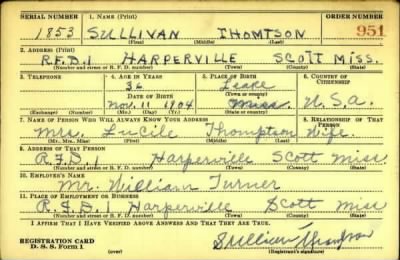 SERIAL NUMBER 1. NAME (Print) ORDER NUMBER
1853 SULLIVAN THOMTSON 951
(First) (Middle) (Last)
2. ADDRESS (Print)
R.F.D.1 HARPERVILLE SCOTT MISS.
(Number and street or R. F. D. number) (Town) (County) (State)
3. TELEPHONE 4. AGE IN YEARS 5. PLACE OF BIRTH 6. COUNTRY OF CITIZENSHIP
36 Leake
DATE OF BIRTH (Town or county)
Nov. 11 1904 Miss. U.S.A.
(Exchange) (Number) (Mo.) (Day) (Yr.) (State or country)
7. NAME OF PERSON WHO WILL ALWAYS KNOW YOUR ADDRESS 8. RELATIONSHIP OF THAT PERSON
Mrs. Lucile Thompson Wife.
(Mr., Mrs., Miss) (First) (Middle) (Last)
9. ADDRESS OF THAT PERSON
R.F.D.1 Harperville Scott Miss.
(Number and street or R. F. D. number) (Town) (County) (State)
10. EMPLOYER'S NAME
Mr. William Turner
11. PLACE OF EMPLOYMENT OR BUSINESS
R.F.D.1 Harperville Scott Miss
(Number and street or R. F. D. number) (Town) (County) (State)
I AFFIRM THAT I HAVE VERIFIED ABOVE ANSWERS AND THAT THEY ARE TRUE.
REGISTRATION CARD
D. S. S. Form 1 (over) Sullivan Thompson
(Registrant's signature)